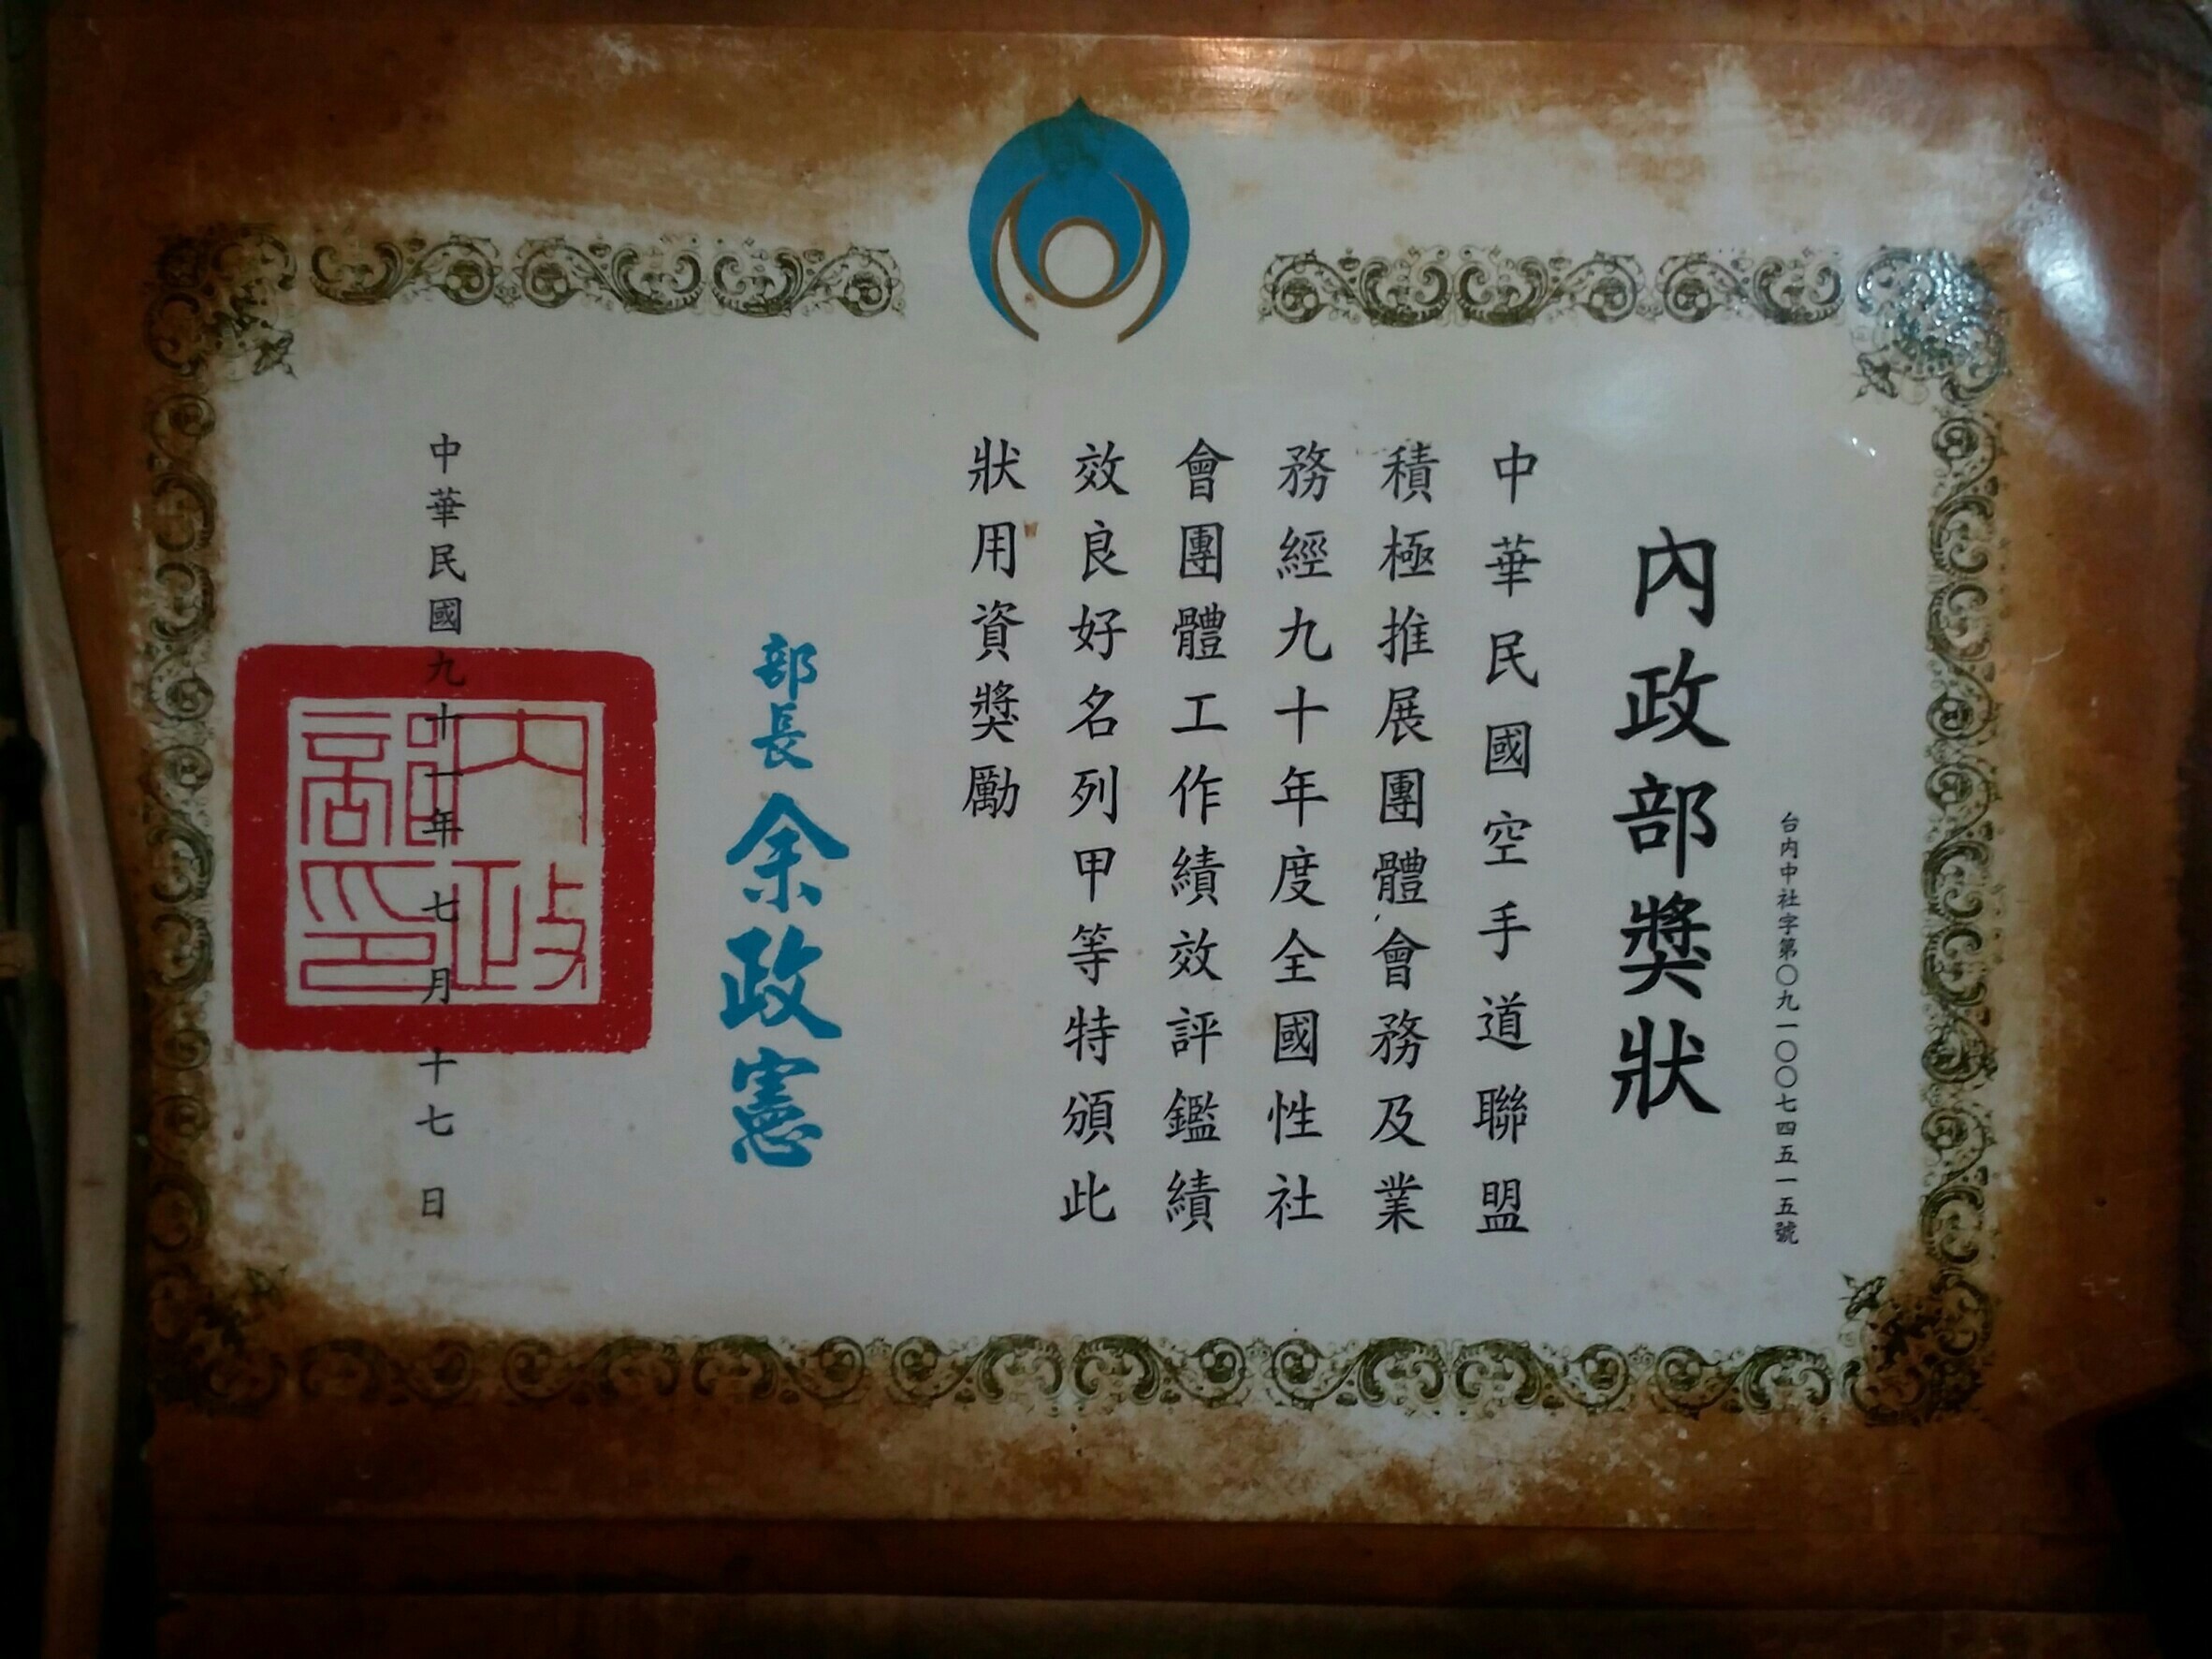 台內中社字第〇九一〇〇七四五一五號
內政部獎狀
中華民國空手道聯盟
積極推展團體會務及業
務經九十年度全國性社
會團體工作績效評鑑績
效良好名列甲等特頒此
狀用資獎勵
部長余政憲
中華民國九十一年七月十七日
內政部印